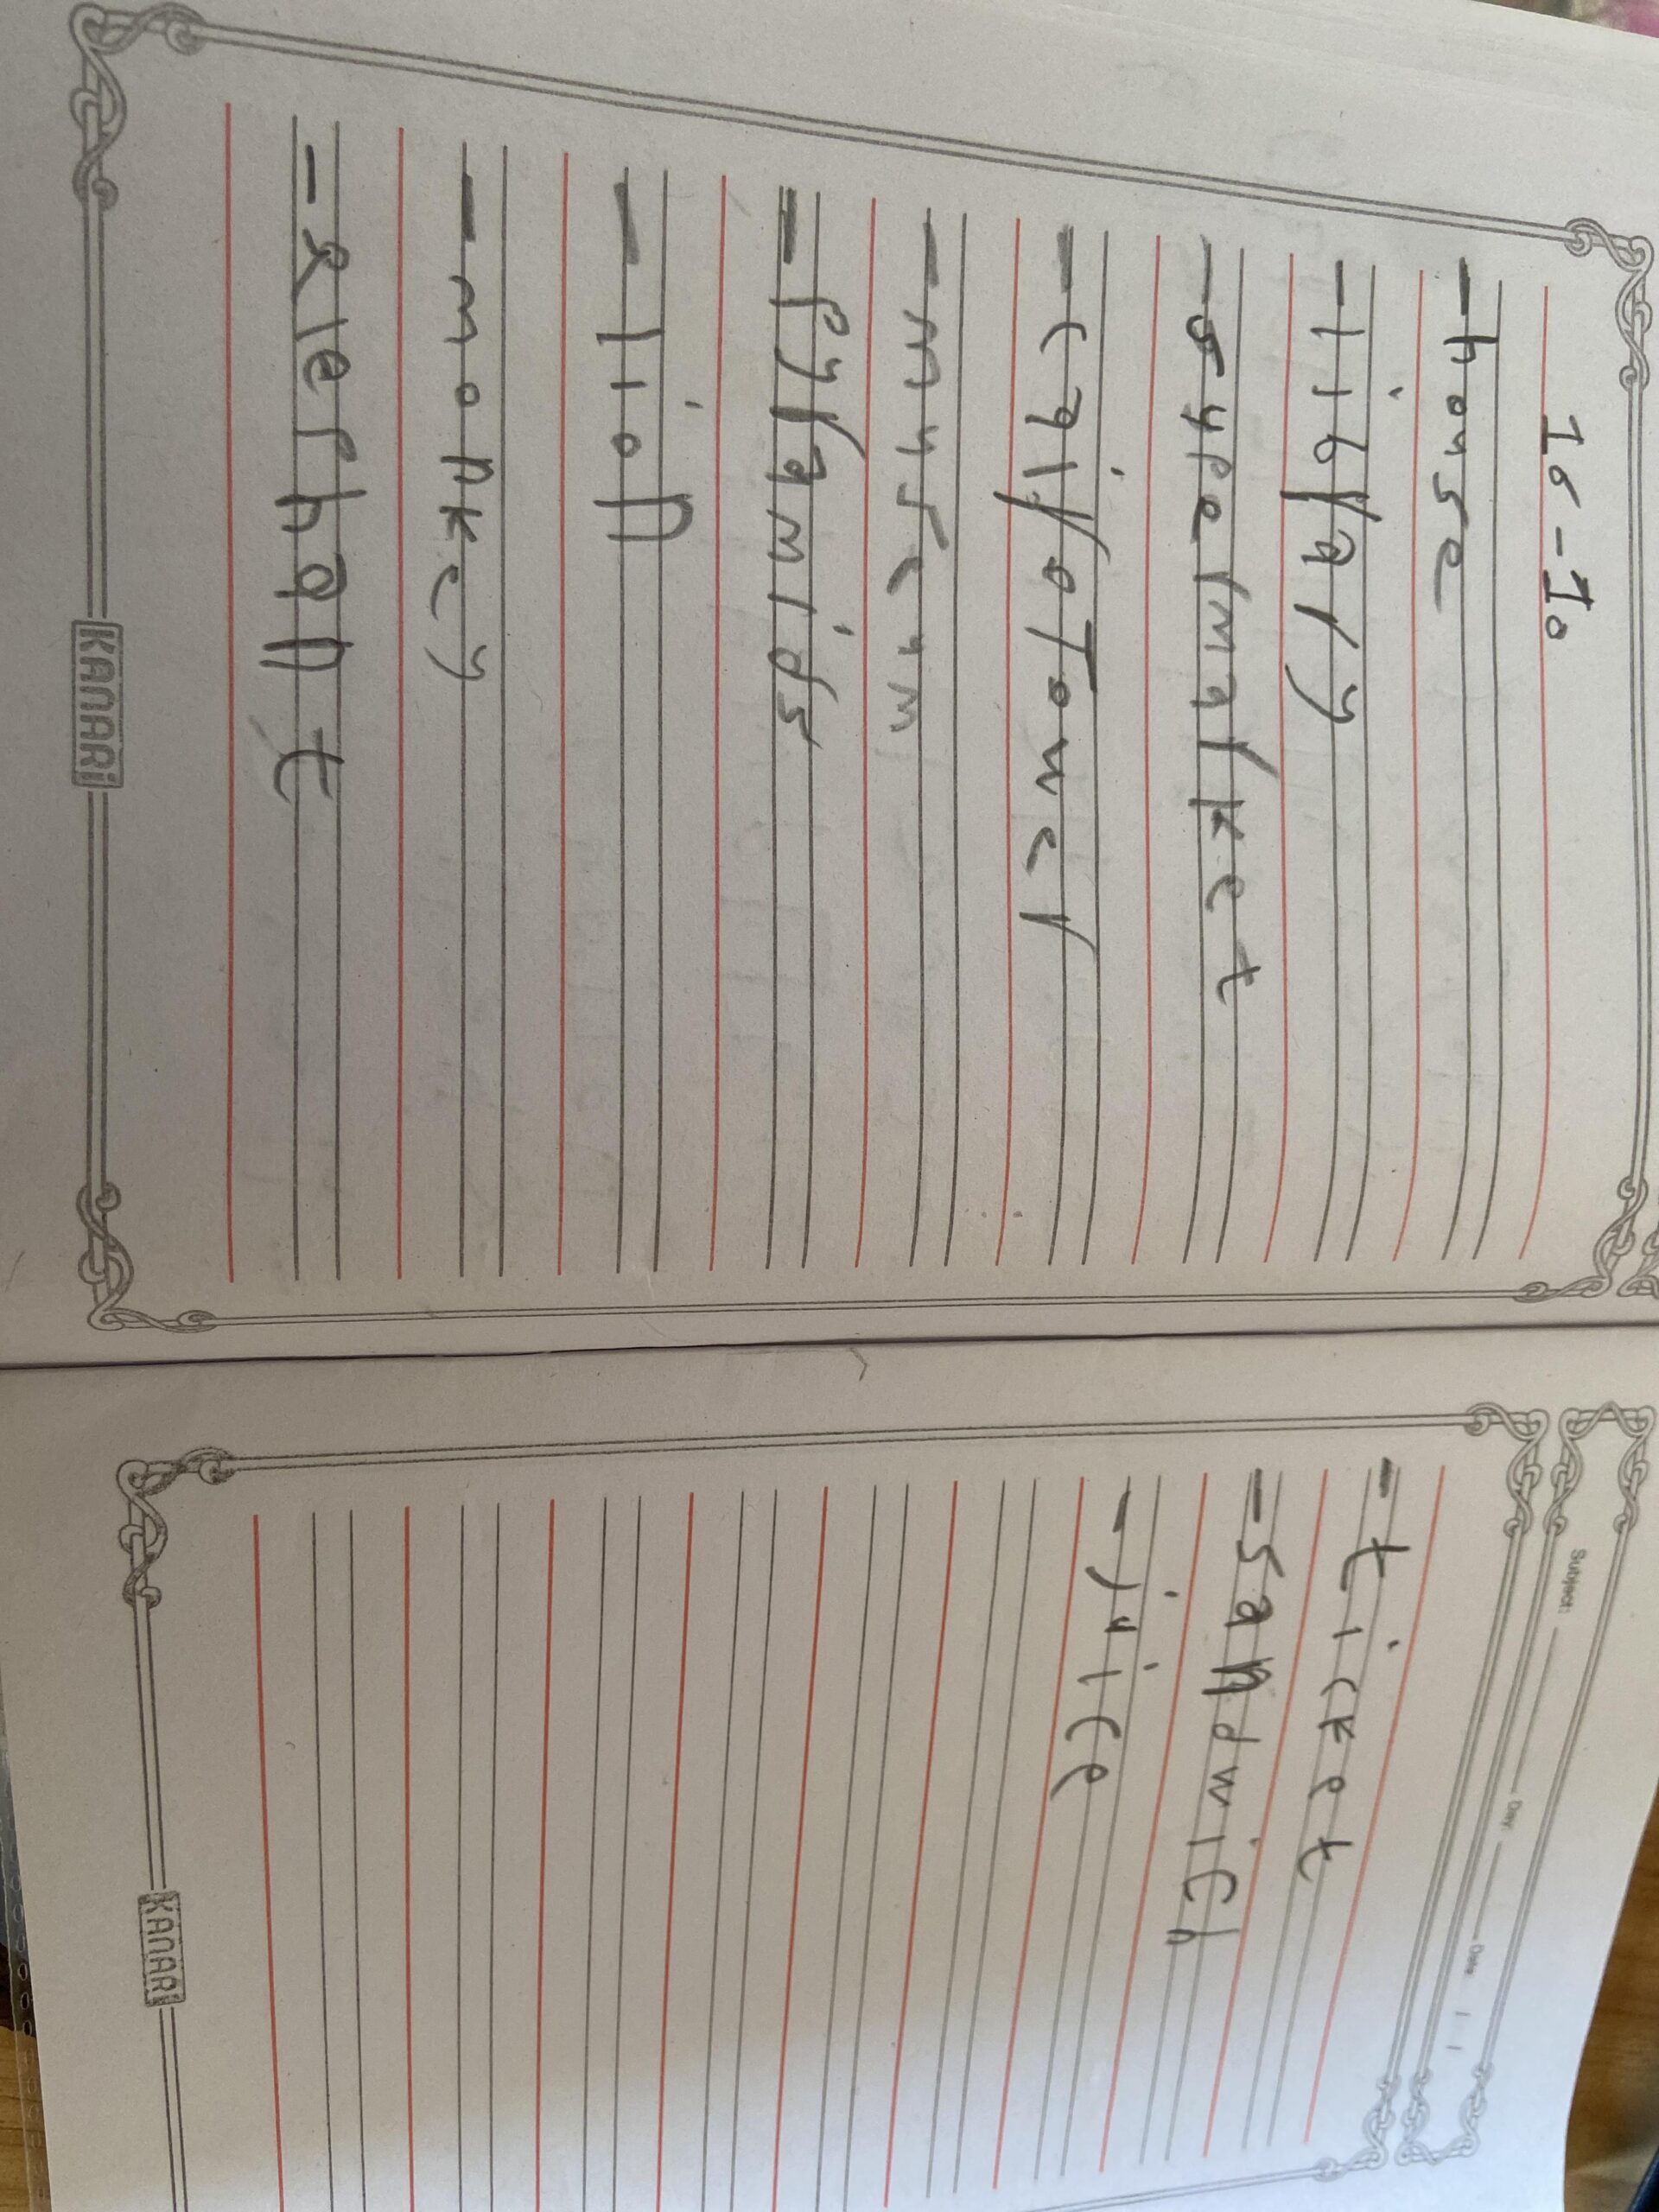 15-10
- house
- library
- supermarket
- cairo Tower
- museum
- pyramids
- lion
- monkey
- elephant
KANARI
Subject: Day: Date: / /
- ticket
- sandwich
- juice
KANARI